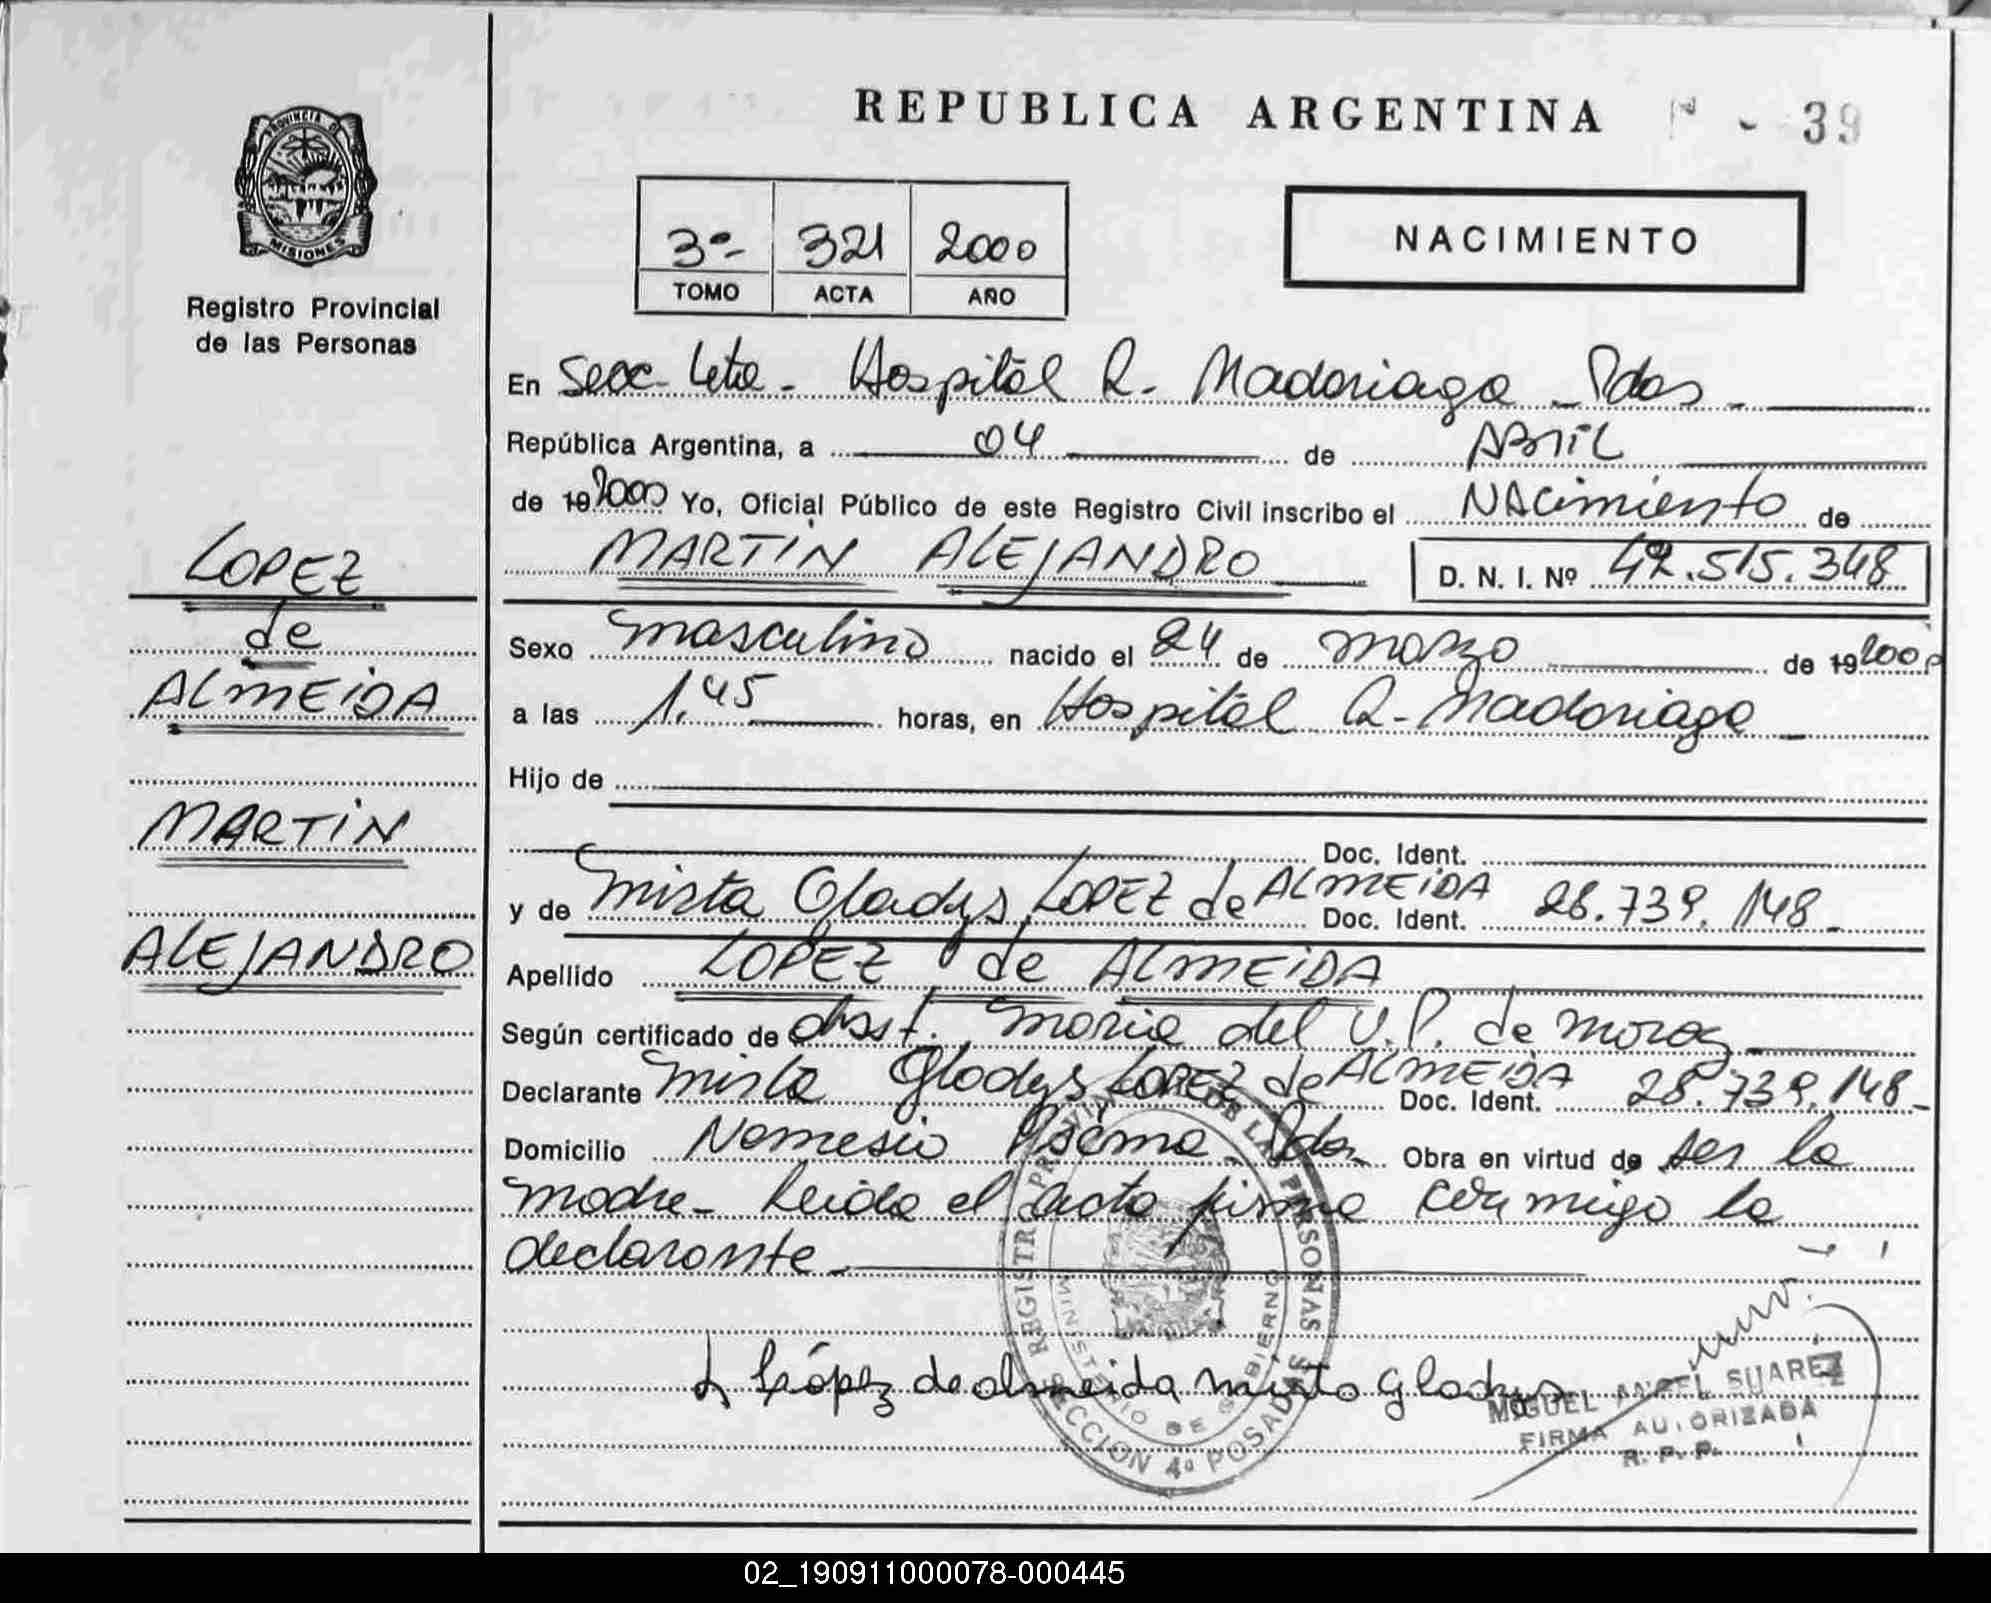 REPUBLICA ARGENTINA
39
PROVINCIA DE
MISIONES
Registro Provincial
de las Personas
3º- 321 2000
TOMO ACTA AÑO
NACIMIENTO
En Secc. 4ta - Hospital R. Madariaga - Pdas -
República Argentina, a 04 de ABRIL
de 19 2000 Yo, Oficial Público de este Registro Civil inscribo el NAcimiento de
MARTIN ALEJANDRO D. N. I. Nº 42.515.348
LOPEZ
de
ALMEIDA
MARTIN
ALEJANDRO
Sexo masculino nacido el 24 de marzo de 19 2000
a las 1,45 horas, en Hospital R. Madariaga -
Hijo de
Doc. Ident.
y de Mirta Gladys LOPEZ de ALMEIDA Doc. Ident. 28.739.148 -
Apellido LOPEZ de ALMEIDA
Según certificado de obst. Maria del V.P. de Mora
Declarante Mirta Gladys LOPEZ de ALMEIDA Doc. Ident. 28.739.148 -
Domicilio Nemesio Pdas - Obra en virtud de ser la
madre - Leida el acta firma conmigo la
declarante -
López de almeida mirta Gladys
REGISTRO PROVINCIAL DE LAS PERSONAS
MINISTERIO DE GOBIERNO
SECCION 4ª POSADAS
MIGUEL ANGEL SUAREZ
FIRMA AUTORIZADA
R. P. P.
02_190911000078-000445